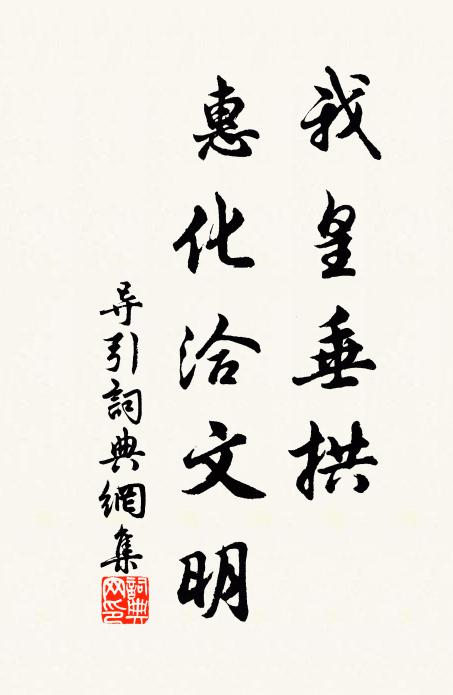 我皇垂拱
惠化洽文明
导引詞典網集
詞典网印